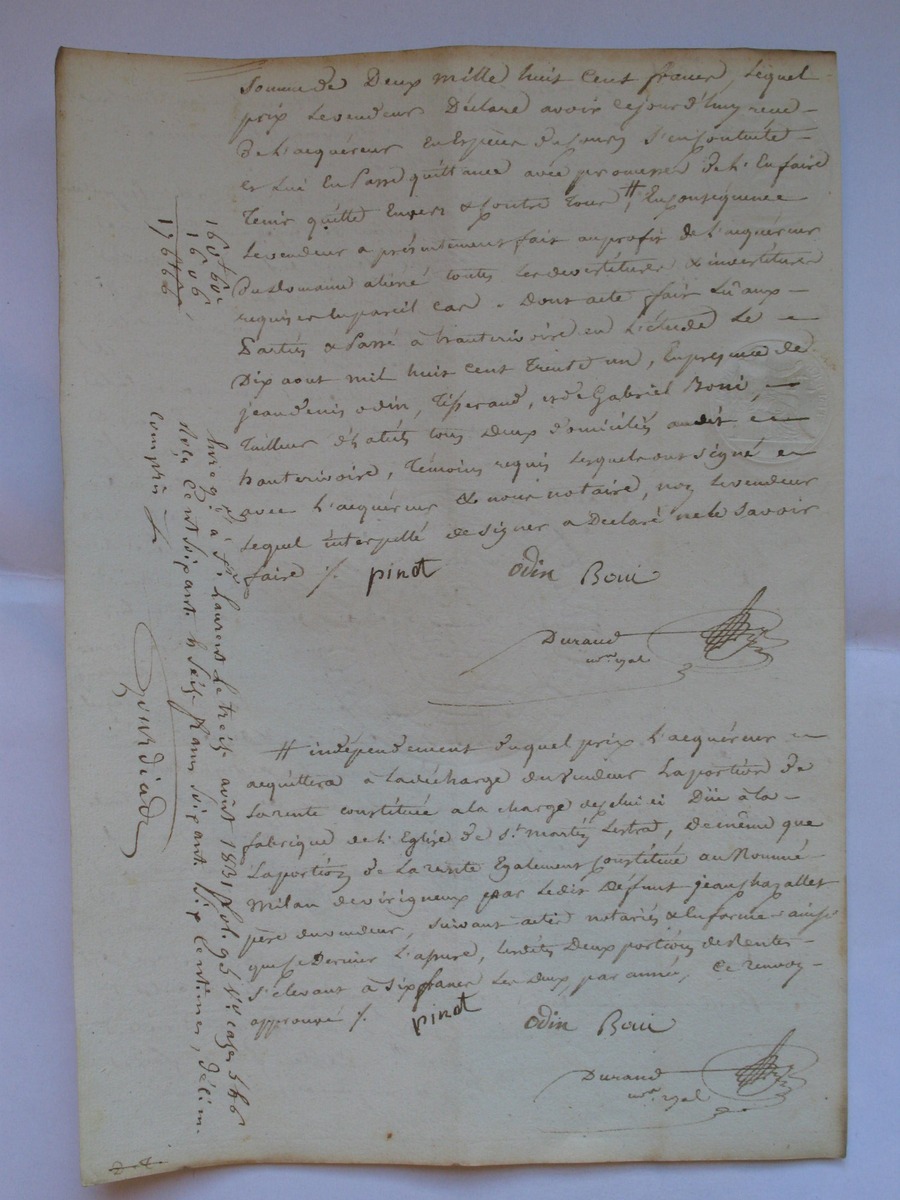 Somme de Deux mille huit Cent francs, Lequel
prix Le vendeur Déclare avoir cejourd'huy reçu
de L'acquéreur En Espèces de Cours, S'en Contente
et Lui En Passe quittance avec promesse de L'En faire
Tenir quitte Envers & Contre Tous, # En Conséquence
Le vendeur a présentement fait au profit de L'acquéreur
Du Domaine aliéné toutes Les devestitures & investitures
requises En pareil Cas. Dont acte fait Lû aux
Parties & Passé à hauterivoire en L'étude Le
Dix aout mil huit Cent Trente un, En présence de
jean denis odin, Tisserand, et de Gabriel Boui,
Tailleur d'habits tous Deux Domiciliés audit
hauterivoire, Témoins requis Lesquels ont signé
avec L'acquéreur & nous notaire, non Le vendeur
Lequel interpellé de signer a Déclaré ne le Savoir
faire ./.
pinot odin Boui
Durand
nre royal
# indépendement duquel prix L'acquéreur
acquittera à La décharge du vendeur La portion de
La rente constituée a la charge de celui ci Düe à la
fabrique de L'Eglise de St. Martin Lestra, De même que
La portion de La rente Également Constituée au Nommé
Milan de virigneux par Ledit Défunt jean Chazallet
père du vendeur, suivant actes notariés & En forme ainsi
que Ce Dernier L'assure, Lesdites Deux portions de Rentes
S'élevant à Six francs Les Deux par année, Ce renvoy
approuvé ./.
pinot odin Boui
Durand
nre royal
160f 60c
16 06
176 66
Enregé. à St. Laurent Le treize août 1831 fol. 95 Vo. cases 5 & 6
Reçu Cent soixante & Seize francs soixante Six centimes, décime
compris
Gourdiade